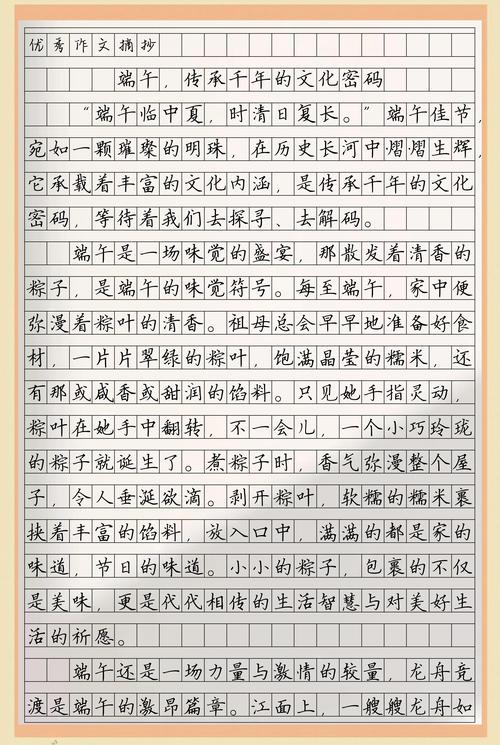 优秀作文摘抄
端午，传承千年的文化密码
“端午临中夏，时清日复长。”端午佳节，
宛如一颗璀璨的明珠，在历史长河中熠熠生辉，
它承载着丰富的文化内涵，是传承千年的文化
密码，等待着我们去探寻、去解码。
端午是一场味觉的盛宴，那散发着清香的
粽子，是端午的味觉符号。每至端午，家中便
弥漫着粽叶的清香。祖母总会早早地准备好食
材，一片片翠绿的粽叶，饱满晶莹的糯米，还
有那或咸香或甜润的馅料。只见她手指灵动，
粽叶在她手中翻转，不一会儿，一个小巧玲珑
的粽子就诞生了。煮粽子时，香气弥漫整个屋
子，令人垂涎欲滴。剥开粽叶，软糯的糯米裹
挟着丰富的馅料，放入口中，满满的都是家的
味道，节日的味道。小小的粽子，包裹的不仅
是美味，更是代代相传的生活智慧与对美好生
活的祈愿。
端午还是一场力量与激情的较量，龙舟竞
渡是端午的激昂篇章。江面上，一艘艘龙舟如